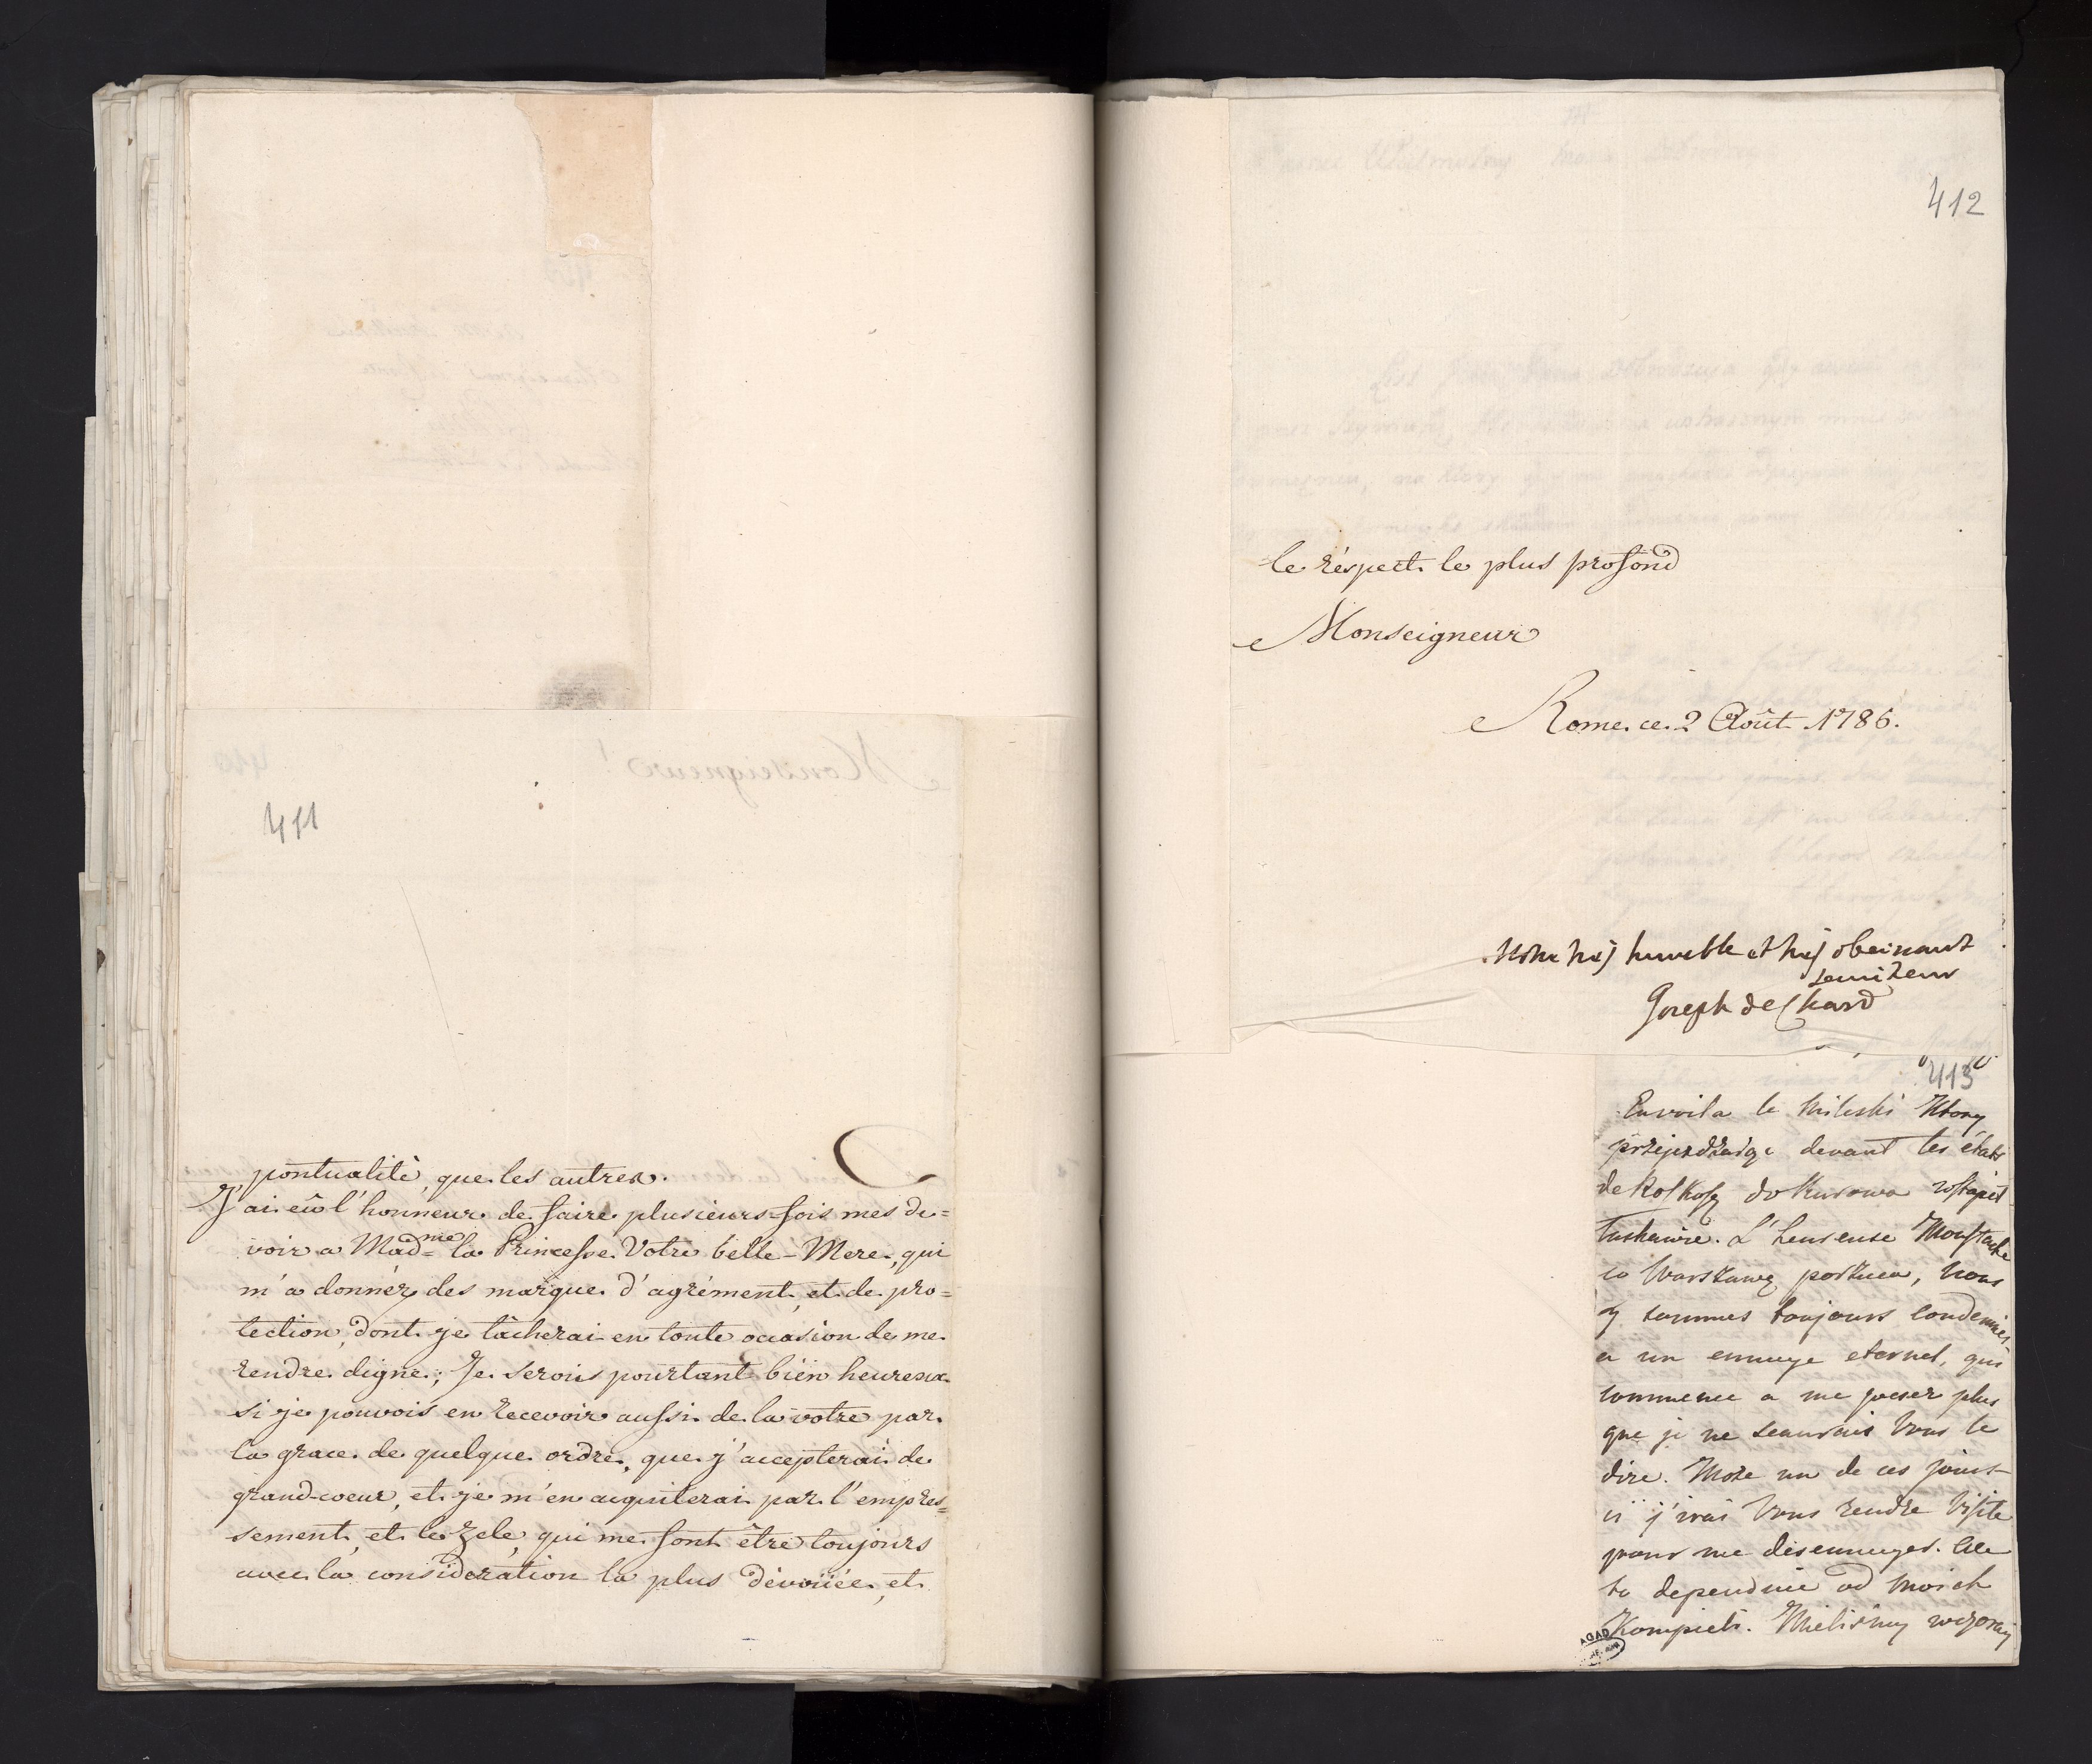 411
pontualité, que les autres.
J'ai eû l'honneur de faire plusieurs fois mes de=
voir a Mad=me la Princesse Votre belle-Mere, qui
m'a donnéz des marque d'agrément, et de pro=
tection, dont je tâcherai en toute occasion de me
rendre digne; Je serois pourtant bien heureux
si je pouvois en recevoir aussi de la votre par
la grace de quelque ordre, que j'accepterai de
grand-coeur, et je m'en acquiterai par l'empres=
sement, et le zele, qui me font être toujours
avec la considération la plus dévoüée, et
412
le réspect le plus profond
Monseigneur
Rome ce 2 Août 1786.
Votre très humble et très obeissant
serviteur
Joseph de
413
En voila le Mileski Ktory
przejezdzaiąc devant les états
de do Kurowa wstąpił
L'heureuse Moustache
co Warszawę porzuca, nous
y sommes toujours condemnés
a un ennuye eternel, qui
commence a me peser plus
que je ne scaurais Vous le
dire. Moze un de ces jours
ci j'irai Vous rendre Visite
pour me desennuyer. Ale
to dependuie od moich
Kompieli. Mielismy wczoray
AGAD